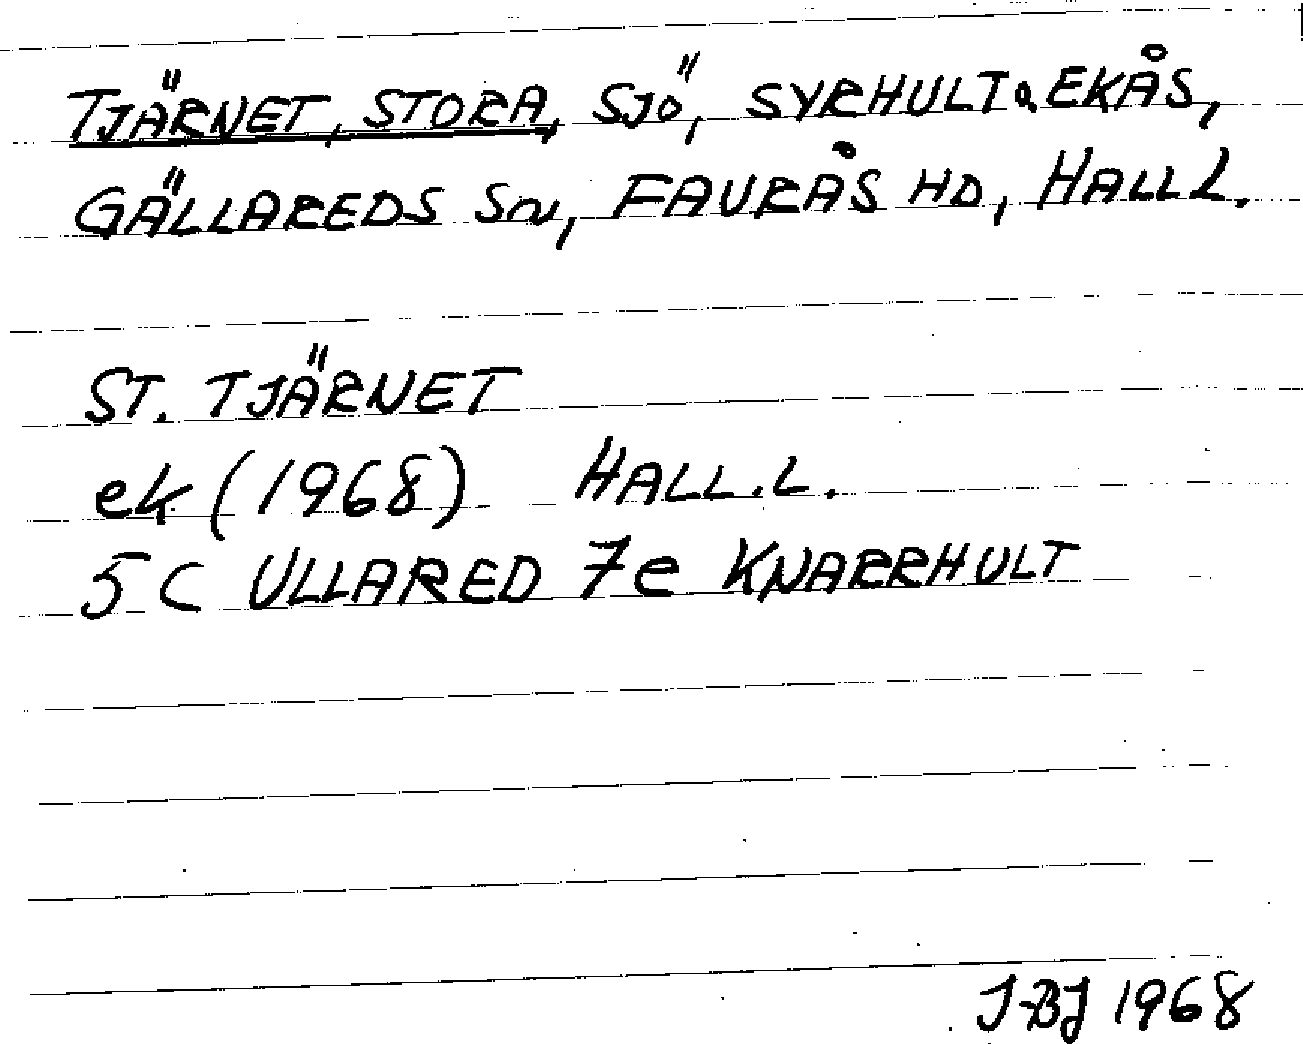 TJÄRNET, STORA, SJÖ, SYRHULT & EKÅS,
GÄLLAREDS SN, FAURÅS HD, HALL L.
ST. TJÄRNET
ek (1968) HALL.L.
5 C ULLARED 7e KNARRHULT
J-BJ 1968